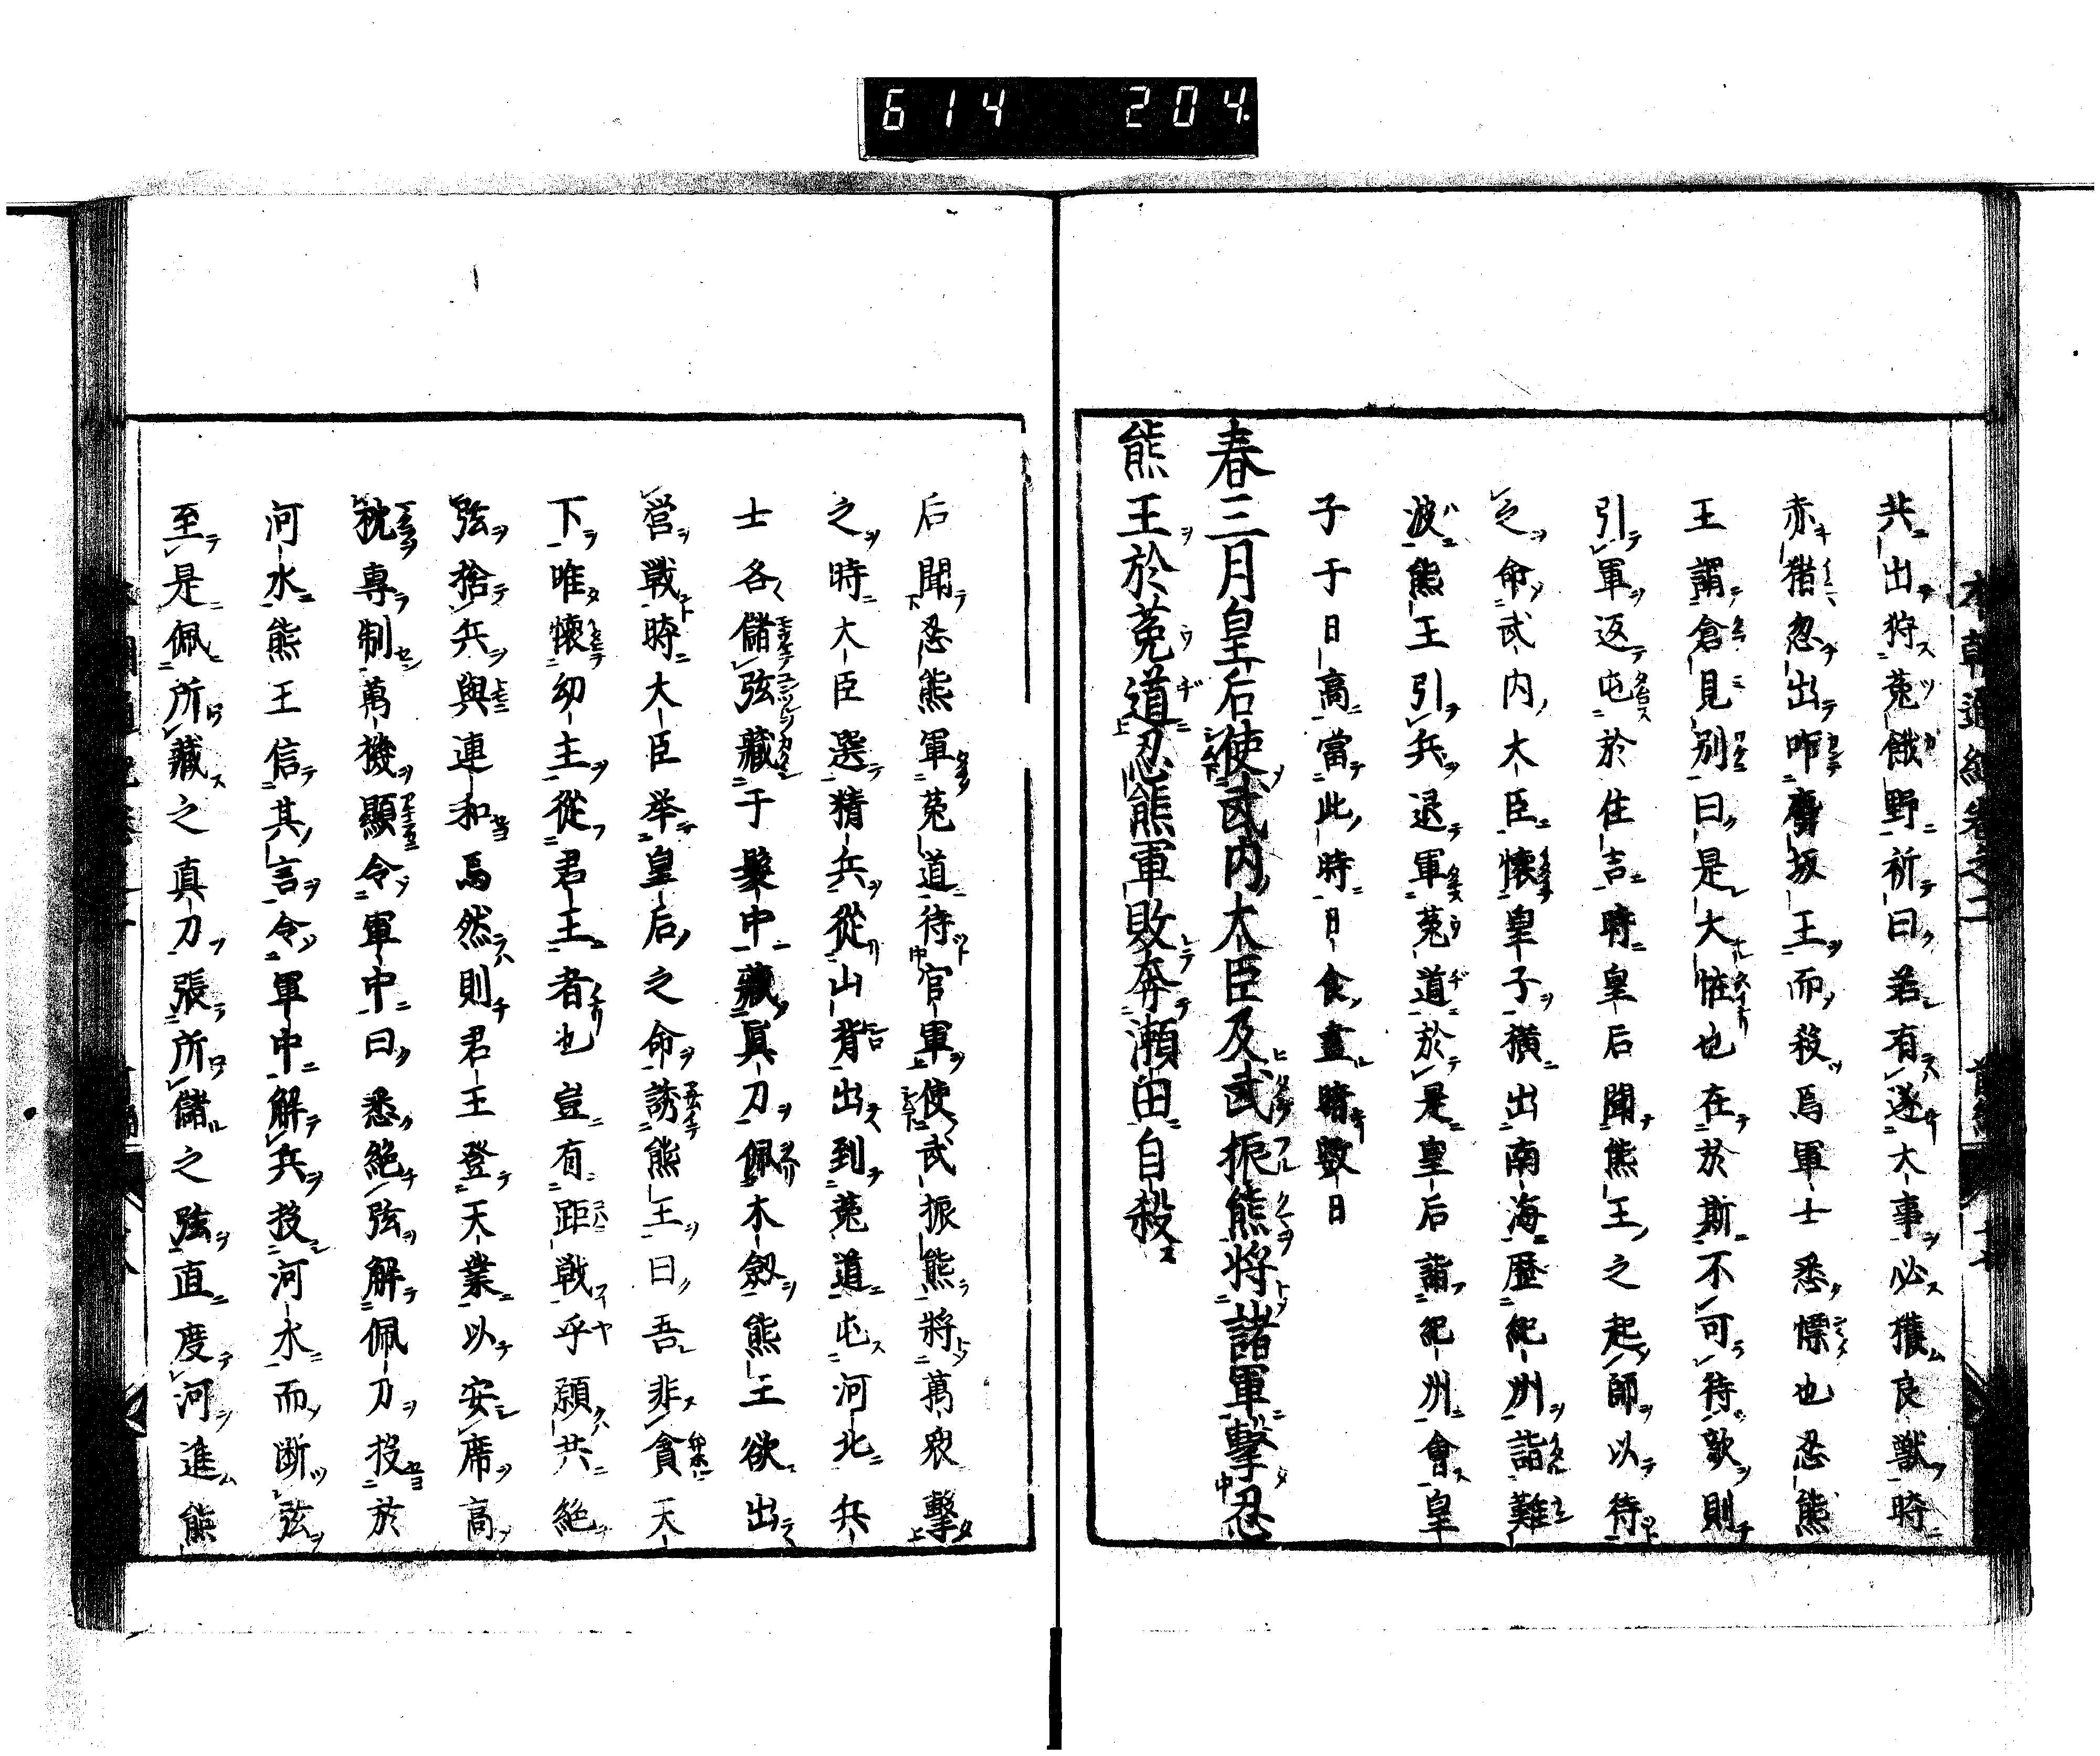 614 204
共出狩菟餓野祈曰若有遂大事必獲良獸時
赤猪忽出咋麛坂王而殺焉軍士悉慄也忍熊
王謂倉見別曰是大恠也在於斯不可待敵則
引軍返屯於住吉時皇后聞熊王之起師以待
之命武内大臣懷皇子横出南海歷紀州詣難
波熊王引兵退軍菟道於是皇后詣紀州會皇
子于日高當此時日食晝暗數日
春三月皇后使武内大臣及武振熊將諸軍擊忍
熊王於菟道忍熊軍敗奔瀬田自殺
后聞忍熊軍菟道待官軍使武振熊將萬衆擊
之時大臣選精兵從山背出到菟道屯河北兵
士各儲弦藏于髮中藏真刀佩木劔熊王欲出
営戰時大臣举皇后之命誘熊王曰吾非貪天
下唯懷幼主從君王者也豈有距戰乎願共絶
弦捨兵與連和焉然則君王登天業以安席高
枕專制萬機顯令軍中曰悉絶弦解佩刀投於
河水熊王信其言令軍中解兵投河水而断弦
至是佩所藏之真刀張所儲之弦直度河進熊